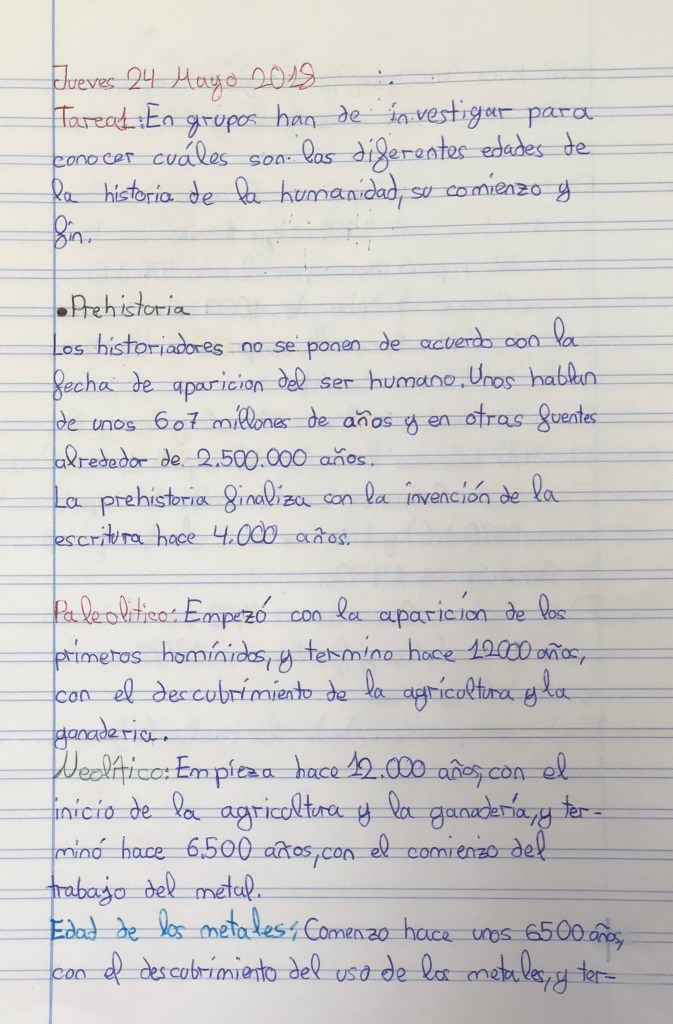 Jueves 24 Mayo 2018
Tarea1: En grupos han de investigar para
conocer cuáles son las diferentes edades de
la historia de la humanidad, su comienzo y
fin.
• Prehistoria
Los historiadores no se ponen de acuerdo con la
fecha de aparicion del ser humano. Unos hablan
de unos 6 o 7 millones de años y en otras fuentes
alrededor de 2.500.000 años.
La prehistoria finaliza con la invención de la
escritura hace 4.000 años.
Paleolitico: Empezó con la aparición de los
primeros homínidos, y termino hace 12000 años,
con el descubrimiento de la agricultura y la
ganaderia.
Neolítico: Empieza hace 12.000 años, con el
inicio de la agricoltura y la ganadería, y ter-
minó hace 6.500 años, con el comienzo del
trabajo del metal.
Edad de los metales: Comenzo hace unos 6500 años,
con el descubrimiento del uso de los metales, y ter-